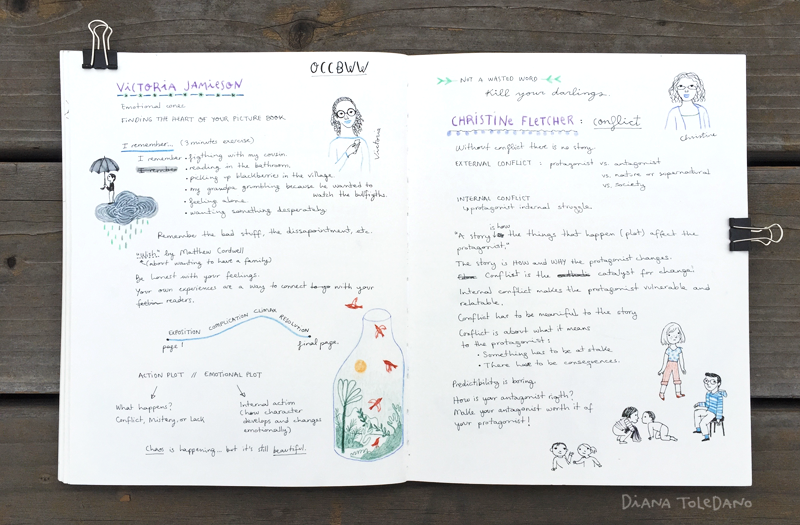 OCCBWW
VICTORIA JAMIESON
Emotional umec
FINDING THE HEART OF YOUR PICTURE BOOK
I remember... (3 minutes exercise)
I remember • figthing with my cousin.
remember • reading in the bathroom.
• picking up blackberries in the village
• my grandpa grumbling because he wanted to
watch the bullfights.
• feeling alone.
• wanting something desperately.
Victoria
Remember the bad stuff, the dissapointment, etc.
"Wish" by Matthew Cordwell
(about wanting to have a family)
Be honest with your feelings.
Your own experiences are a way to connect to go with your
readers.
EXPOSITION COMPLICATION CLIMAX RESOLUTION
page 1
final page.
ACTION PLOT // EMOTIONAL PLOT
What happens?
Conflict, Mistery, or Lack
Internal action
(how character
develops and changes
emotionally)
Chaos is happening... but it's still beautiful.
NOT A WASTED WORD
Kill your darlings.
CHRISTINE FLETCHER: conflict
Christine
Without conflict there is no story.
EXTERNAL CONFLICT: protagonist vs. antagonist
vs. nature or supernatural
vs. society
INTERNAL CONFLICT
protagonist internal struggle.
"A story is how the things that happen (plot) affect the
protagonist."
The story is HOW and WHY the protagonist changes.
Conflict is the catalyst for change!
Internal conflict makes the protagonist vulnerable and
relatable.
Conflict has to be meaninful to the story
Conflict is about what it means
to the protagonist:
• Something has to be at stake
• There have to be consequences.
Predictibility is boring.
How is your antagonist rigth?
Make your antagonist worth it of
your protagonist!
DIANA TOLEDANO